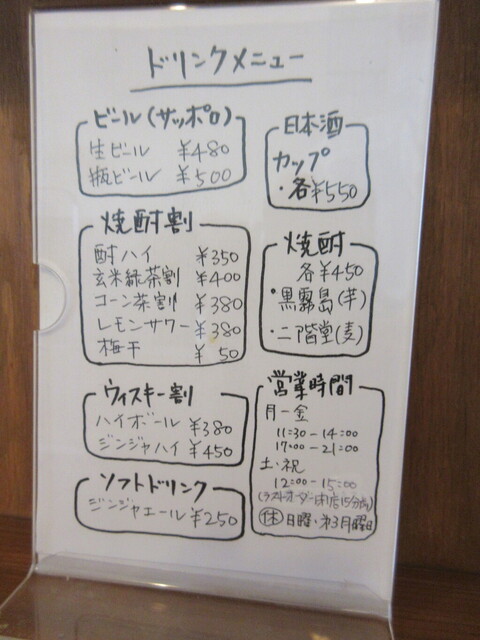 ドリンクメニュー
ビール(サッポロ)
生ビール ¥480
瓶ビール ¥500
焼酎割
酎ハイ ¥350
玄米緑茶割 ¥400
コーン茶割 ¥380
レモンサワー ¥380
梅干 ¥50
ウィスキー割
ハイボール ¥380
ジンジャハイ ¥450
ソフトドリンク
ジンジャエール ¥250
日本酒
カップ
・各¥550
焼酎
各¥450
・黒霧島(芋)
・二階堂(麦)
営業時間
月-金
11:30-14:00
17:00-21:00
土・祝
12:00-15:00
(ラストオーダー閉店15分前)
休 日曜・第3月曜日